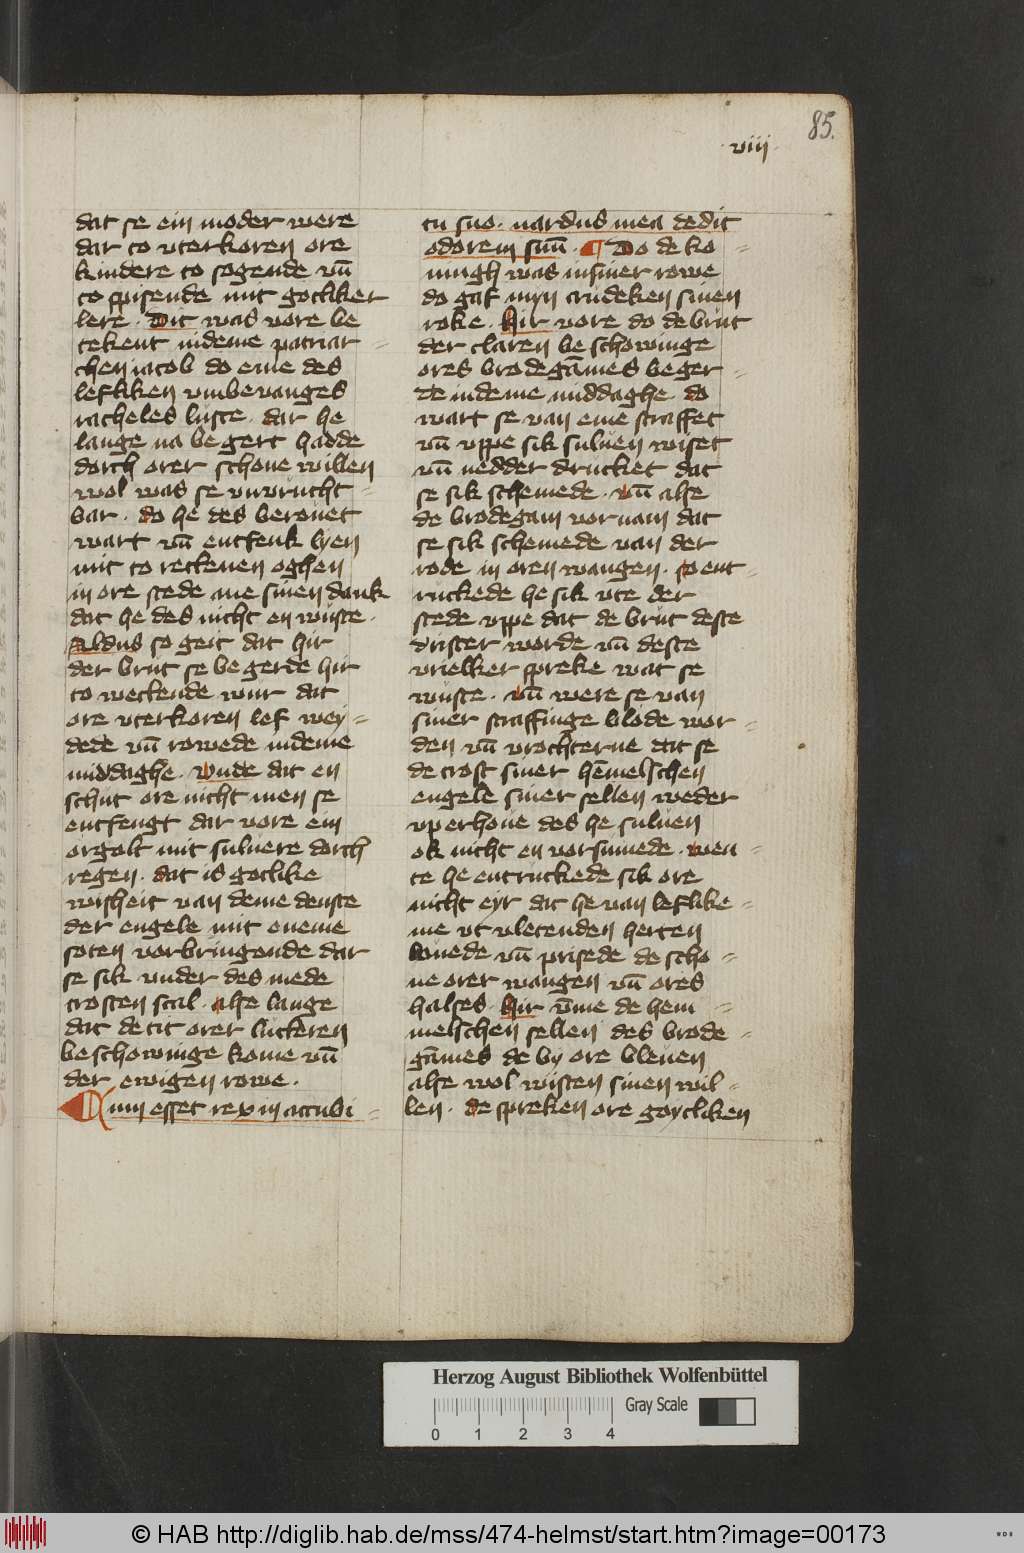 85.
viij.
dat se ein moder were
dar to vterkoren ore
kindere to sogende vn̄
to spisende mit gotliker
lere. Dit was vore be
tekent indeme patriar=
chen iacob do eme des
lefliken vmbevanges
racheles luste. dar he
lange na begert hadde
dorch orer schone willen
wol was se vnvrucht=
bar. do he des berouet
wart vn̄ entfenk lyen
mit to reckenen oghen
in ore stede ane sinen dank
dat he des nicht en wuste.
Aldus so geit dat hir
der brut se begerde hir
to weckende wur dat
ore vterkoren lef wey=
dede vn̄ rowede indeme
middaghe. vnde dat en
schut ore nicht men se
entfengt dar vore ein
orgolt mit suluere dorch
regen. dat is gotlike
wisheit van deme denste
der engele mit eneme
soten vorbringende dar
se sik vnder des mede
trosten scal. alse lange
dat de tit orer lutteren
beschowinge kome vn̄
der ewigen rowe.
Cum esset rex in accubi=
tu suo. nardus mea dedit
odorem suū. ¶ Do de ko=
ningh was insiner rowe
do gaf myn crudeken sinen
roke. Hir vore do de brut
der claren beschowinge
ores brodegāmes beger=
de indeme middaghe do
wart se van eme straffet
vn̄ vppe sik suluen wiset
vn̄ nedder drucket dat
se sik schemede. vn̄ alse
de brodegam vornam dat
se sik schemede van der
rode in oren wangen. so ent=
ruckede he sik vte der
stede vppe dat de brut deste
drister worde vn̄ deste
vrielker spreke wat se
wuste. vn̄ were se van
siner straffinge blode wor=
den vn̄ vrochterne dat se
de trost siner hēmelschen
engele siner sellen weder
vperhoue des he suluen
ok nicht en vorsumede. wen=
te he entruckede sik ore
nicht eyr dat he van leflike=
me vt vletenden herten
louede vn̄ prisede de scho=
ne orer wangen vn̄ ores
halses. Hir vm̄e de hem=
melschen sellen des brode=
gāmes de by ore bleuen
alse wol wusten sinen wil=
len. de spreken ore goytliken
Herzog August Bibliothek Wolfenbüttel
Gray Scale
0 1 2 3 4
© HAB http://diglib.hab.de/mss/474-helmst/start.htm?image=00173